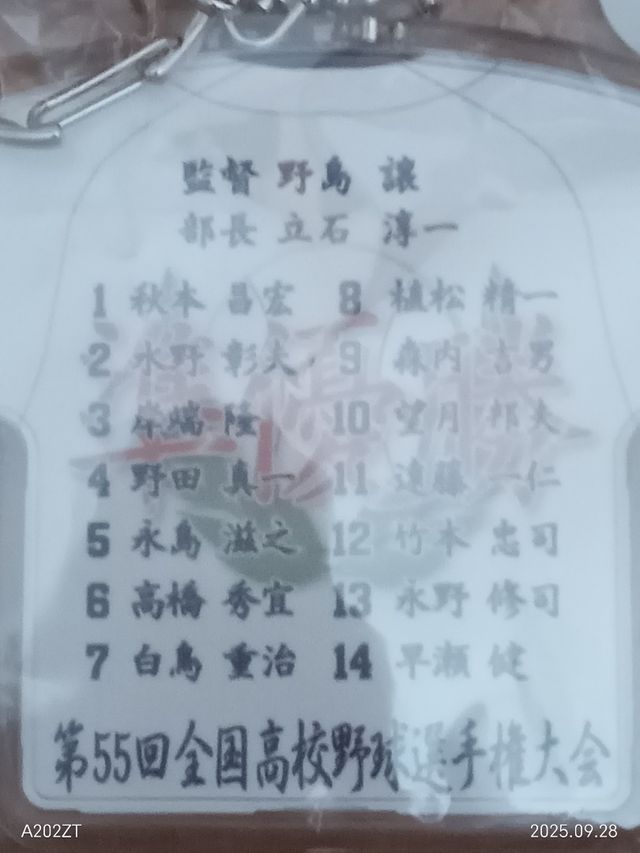 監督 野島 譲
部長 立石 淳一
1 秋本 昌宏 8 植松 精一
2 水野 彰夫 9 森内 吉男
3 岸端 隆 10 望月 邦夫
4 野田 真一 11 遠藤 一仁
5 永島 滋之 12 竹本 忠司
6 高橋 秀宜 13 永野 修司
7 白鳥 重治 14 早瀬 健
準優勝
第55回全国高校野球選手権大会
A202ZT 2025.09.28